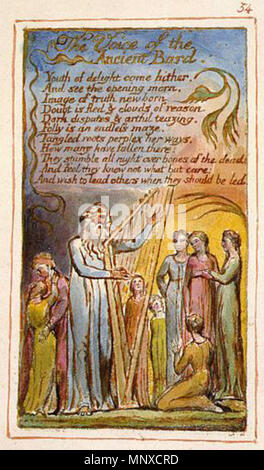 54
The Voice of the
Ancient Bard.
Youth of delight come hither.
And see the opening morn.
Image of truth new born
Doubt is fled & clouds of reason.
Dark disputes & artful teazing.
Folly is an endless maze.
Tangled roots perplex her ways.
How many have fallen there!
They stumble all night over bones of the dead:
And feel they know not what but care;
And wish to lead others when they should be led.
alamy
alamy
Image ID: MNXCRD
www.alamy.com